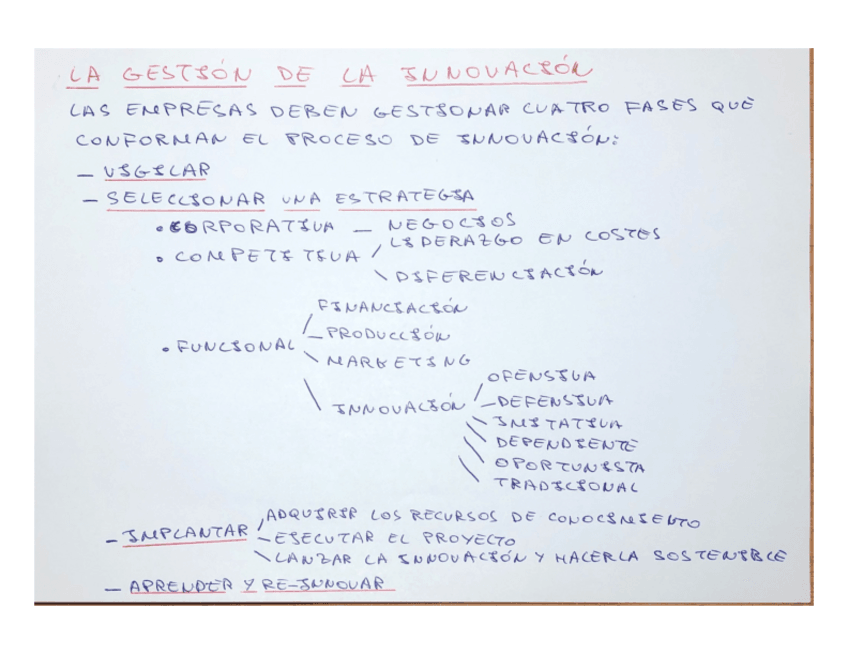 LA GESTIÓN DE LA INNOVACIÓN
LAS EMPRESAS DEBEN GESTIONAR CUATRO FASES QUE
CONFORMAN EL PROCESO DE INNOVACIÓN:
- VIGILAR
- SELECCIONAR UNA ESTRATEGIA
• CORPORATIVA - NEGOCIOS
• COMPETITIVA / LIDERAZGO EN COSTES
\ DIFERENCIACIÓN
/ FINANCIACIÓN
• FUNCIONAL - PRODUCCIÓN
\ MARKETING
\ INNOVACIÓN / OFENSIVA
- DEFENSIVA
\ IMITATIVA
\ DEPENDIENTE
\ OPORTUNISTA
\ TRADICIONAL
- IMPLANTAR / ADQUIRIR LOS RECURSOS DE CONOCIMIENTO
- EJECUTAR EL PROYECTO
\ LANZAR LA INNOVACIÓN Y HACERLA SOSTENIBLE
- APRENDER Y RE-INNOVAR